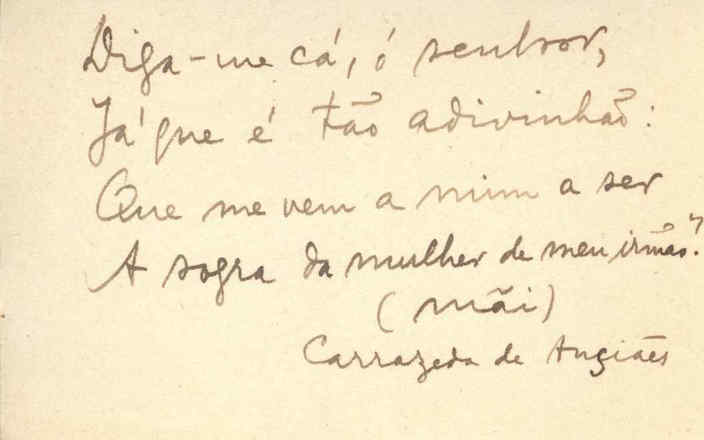 Diga-me cá, ó senhor,
Já que é tão adivinhão:
Que me vem a mim a ser
A sogra da mulher de meu irmão?
(mãi)
Carrazeda de Anciães